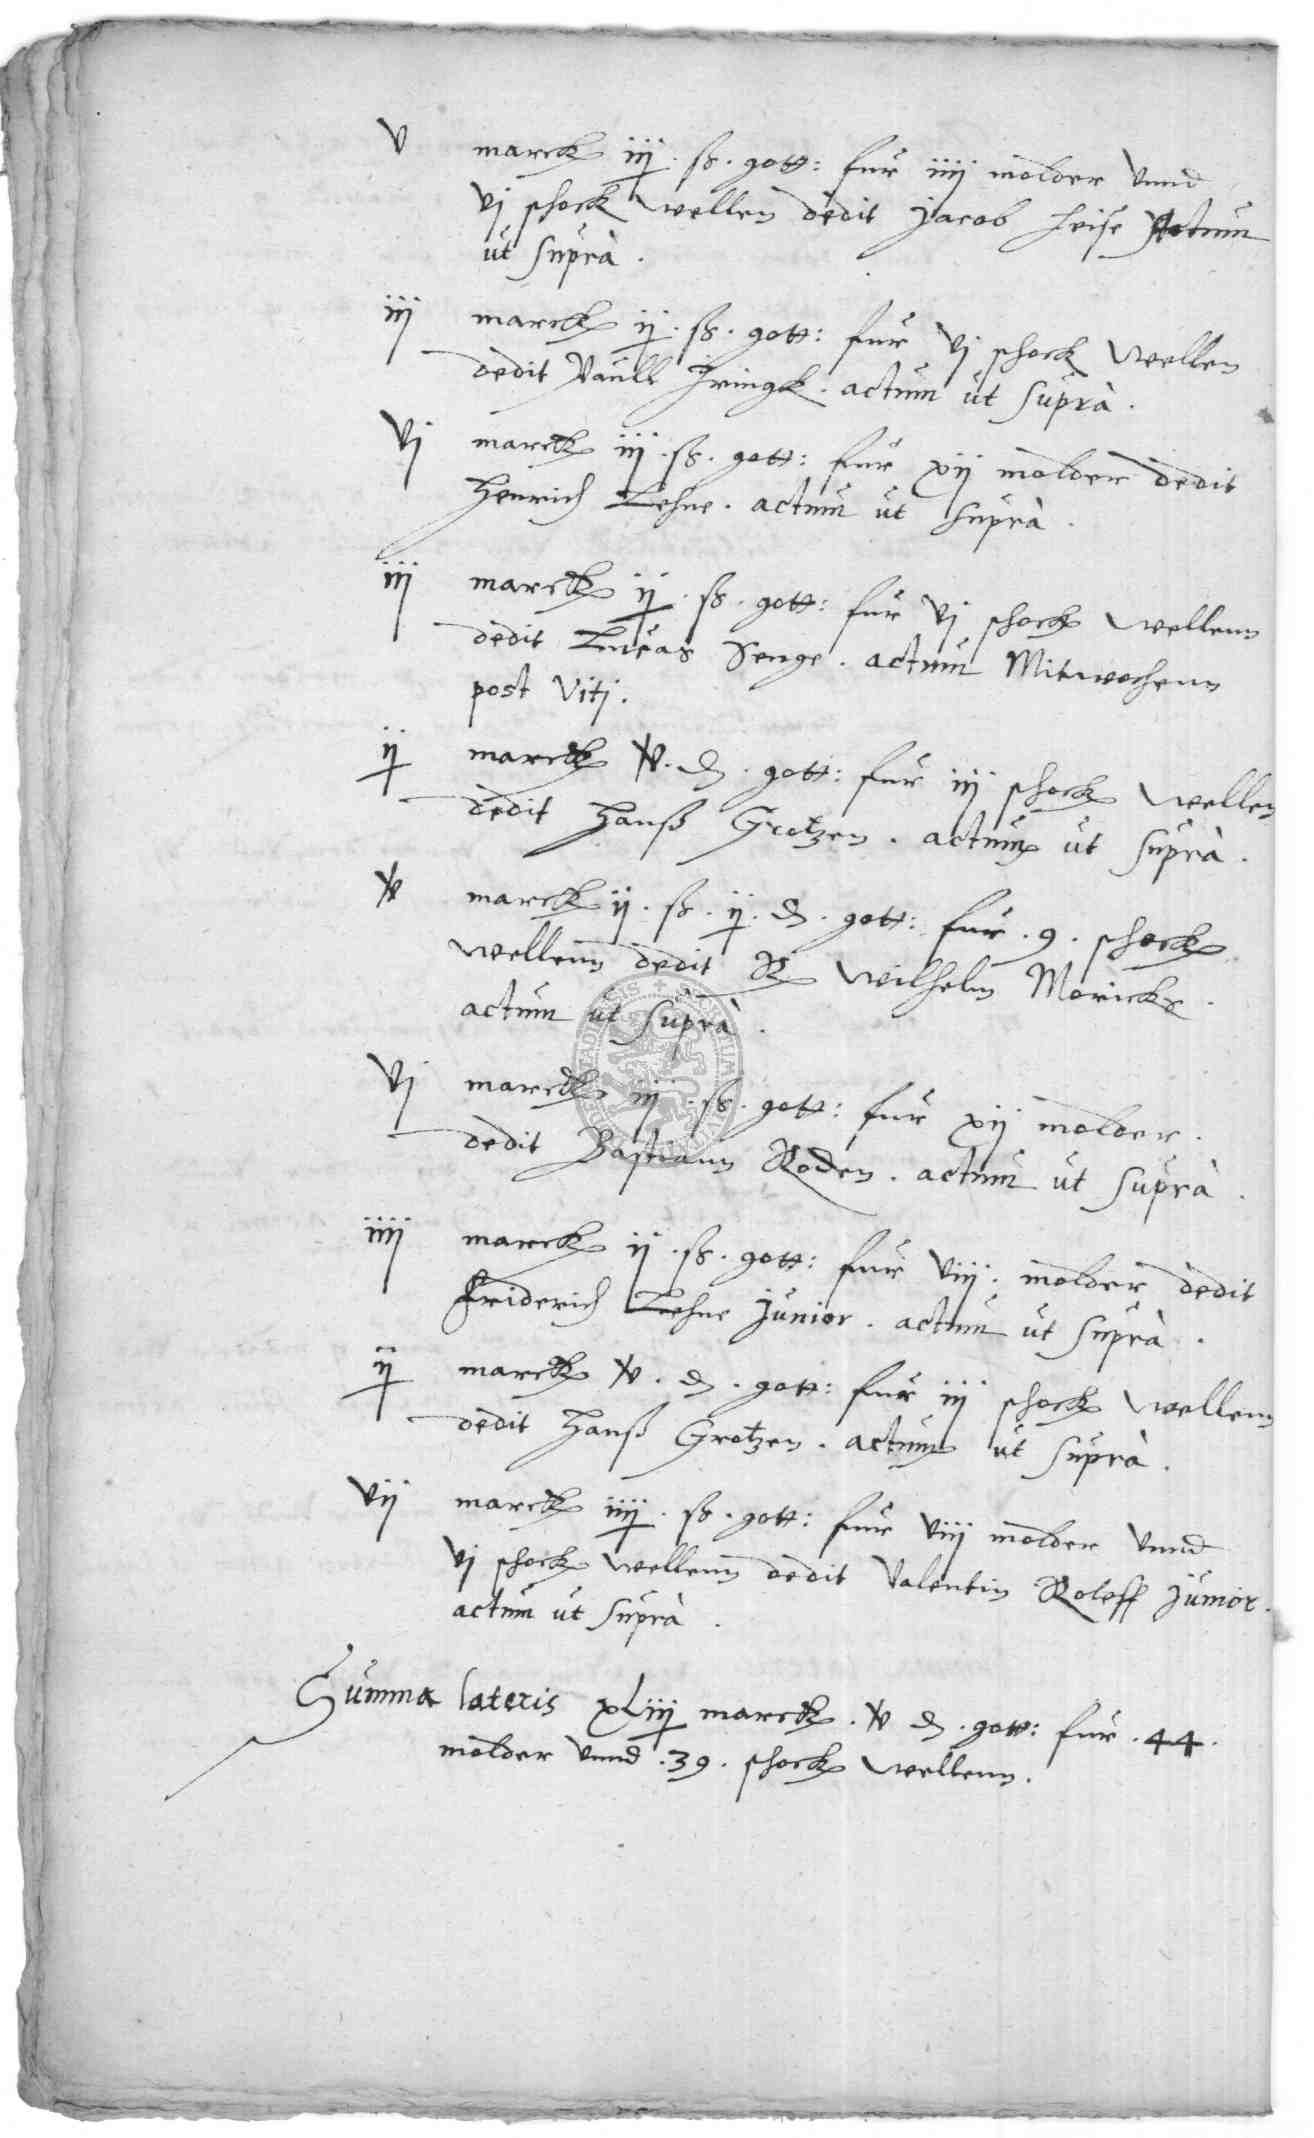 v marck iij . ß . gott: fur iiij molder vnnd
vj schock wellen dedit Jacob Heise Actum
ut suprà .
iij marck ij . ß . gott: fur vj schock wellen
dedit Paull Iringk . actum ut suprà .
vj marck iij . ß . gott: fur xij molder dedit
Henrich Lehne . actum ut suprà .
iij marck ij . ß . gott: fur vj schock wellenn
dedit Lucas Senge . actum Mitwochenn
post Viti .
ij marck v . ₰ . gott: fur iij schock wellen
dedit Hanß Grotzen . actum ut suprà .
v marck ij . ß . ij . ₰ . gott: fur . 9 . schock
wellenn dedit Wilhelm Moricke .
actum ut suprà .
vj marck iij . ß . gott: fur xij molder .
dedit Bastiann Roden . actum ut suprà .
iiij marck ij . ß . gott: fur viij . molder dedit
Friderich Lehne Junior . actum ut suprà .
ij marck v . ₰ . gott: fur iij schock wellenn
dedit Hanß Grotzen . actum ut suprà .
vij marck iiij . ß . gott: fur viij molder vnnd
vj schock wellenn dedit Valentin Roleff Junior .
actum ut suprà .
Summa lateris xLiij marck . v ₰ . gott: fur . 44 .
molder vnnd . 39 . schock wellenn .